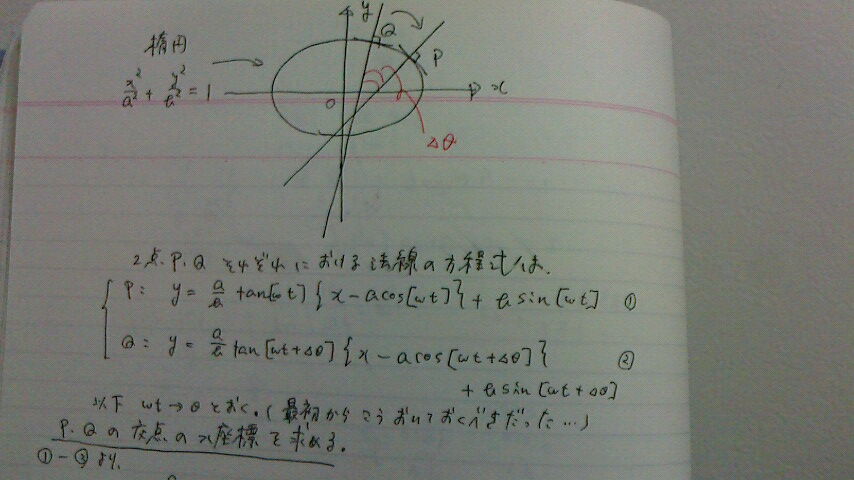 y
Q
P
楕円
x²/a² + y²/b² = 1
O
x
Δθ
2点P.Qそれぞれにおける法線の方程式は、
P: y = a/b tan[ωt]{x-acos[ωt]}+bsin[ωt] ①
Q: y = a/b tan[ωt+Δθ]{x-acos[ωt+Δθ]} ②
+bsin[ωt+Δθ]
以下 ωt→θとおく。(最初からこうおいておくべきだった…)
P.Qの交点のx座標を求める。
①-②より、